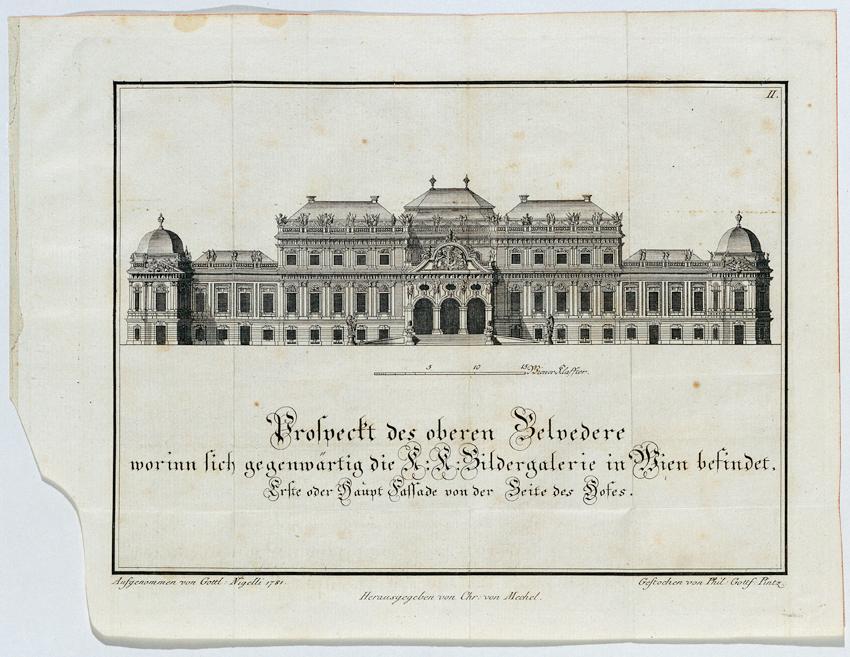 II.
5 10 15 Wiener Klaffter.
Prospeckt des oberen Belvedere
worinn sich gegenwärtig die K: K: Bildergalerie in Wien befindet.
Erste oder Haupt Fassade von der Seite des Hofes.
Aufgenommen von Gottl: Nigelli 1781.
Gestochen von Phil. Gottf. Pintz
Herausgegeben von Chr: von Mechel.